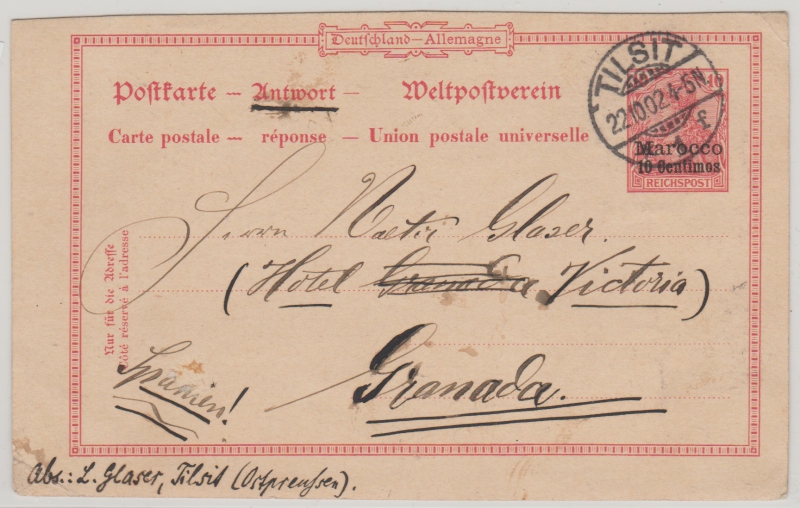 Deutschland—Allemagne
Postkarte — Antwort — Weltpostverein
Carte postale — réponse — Union postale universelle
TILSIT
22.10.02.4-5N.
10
Marocco
10 Centimos
REICHSPOST
Nur für die Adresse
Côté réservé à l'adresse
Herrn Glaser.
(Hotel Granada Victoria)
Granada.
Spanien!
Abs.: L. Glaser, Tilsit (Ostpreussen).